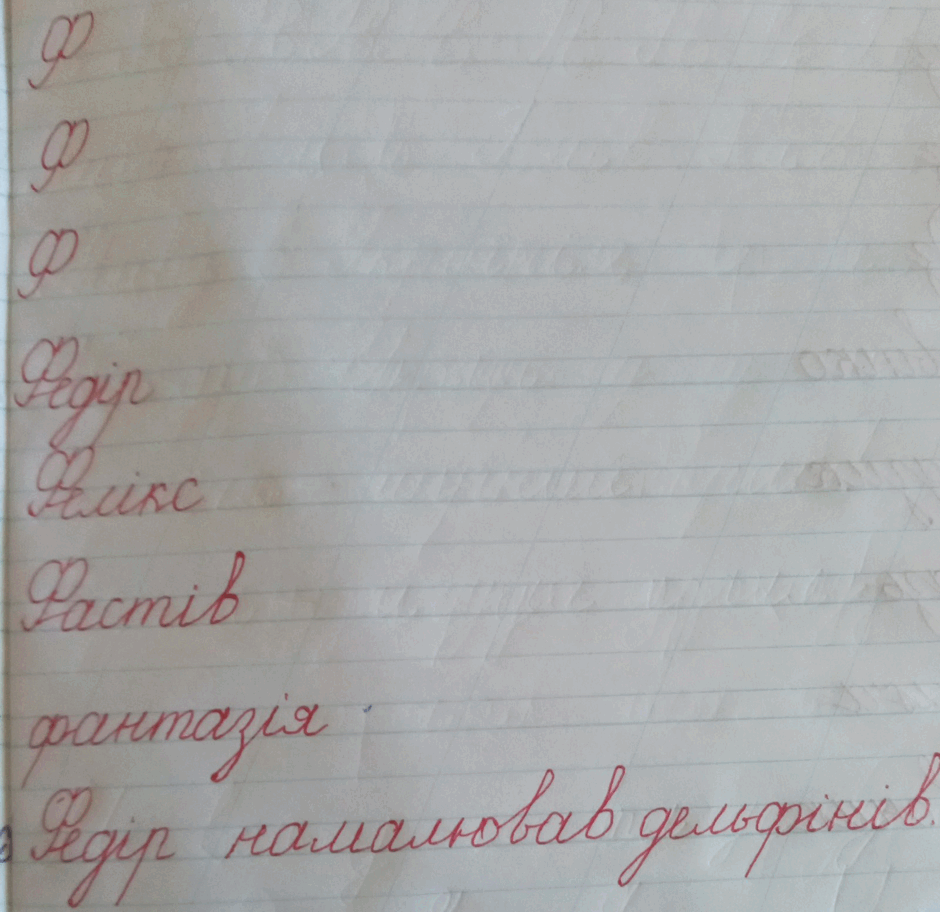 ф
ф
ф
Федір
Фелікс
Фастів
фантазія
Федір намалював дельфінів.